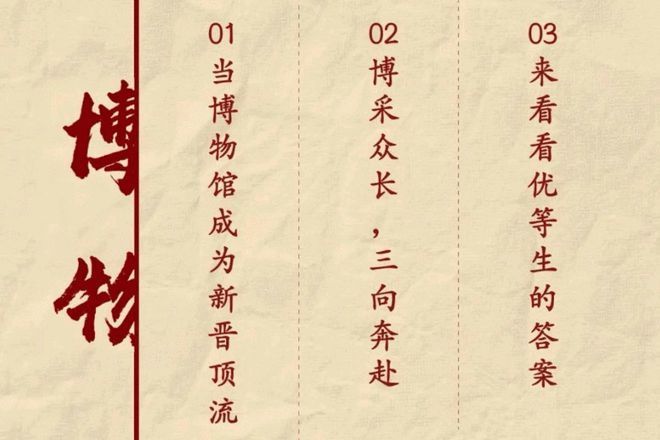 博物
01
当博物馆成为新晋顶流
02
博采众长，三向奔赴
03
来看看优等生的答案